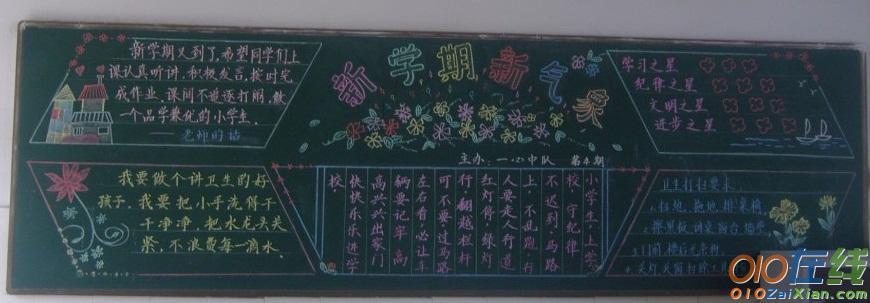 新学期又到了，希望同学们上
课认真听讲，积极发言，按时完
成作业，课间不追逐打闹，做
一个品学兼优的小学生。
——老师的话
新学期新气象
主办：一（2）中队 第4期
学习之星
纪律之星
文明之星
进步之星
我要做个讲卫生的好
孩子，我要把小手洗得干
干净净，把水龙头关
紧，不浪费每一滴水。
小学生，上学
校，守纪律
不迟到，马路
上，不乱跑，行
人要走人行道
红灯停，绿灯
行，翻越栏杆
可不要，过马路
左右看，必让车
辆要记牢，高
高兴兴出家门
快快乐乐进学
校
卫生打扫要求
1、扫地、拖地、排桌椅
2、擦黑板、讲桌、窗台、墙壁
3、门前、楼后无杂物
4、关灯、关窗、打除工具
010在线
010ZaiXian.com